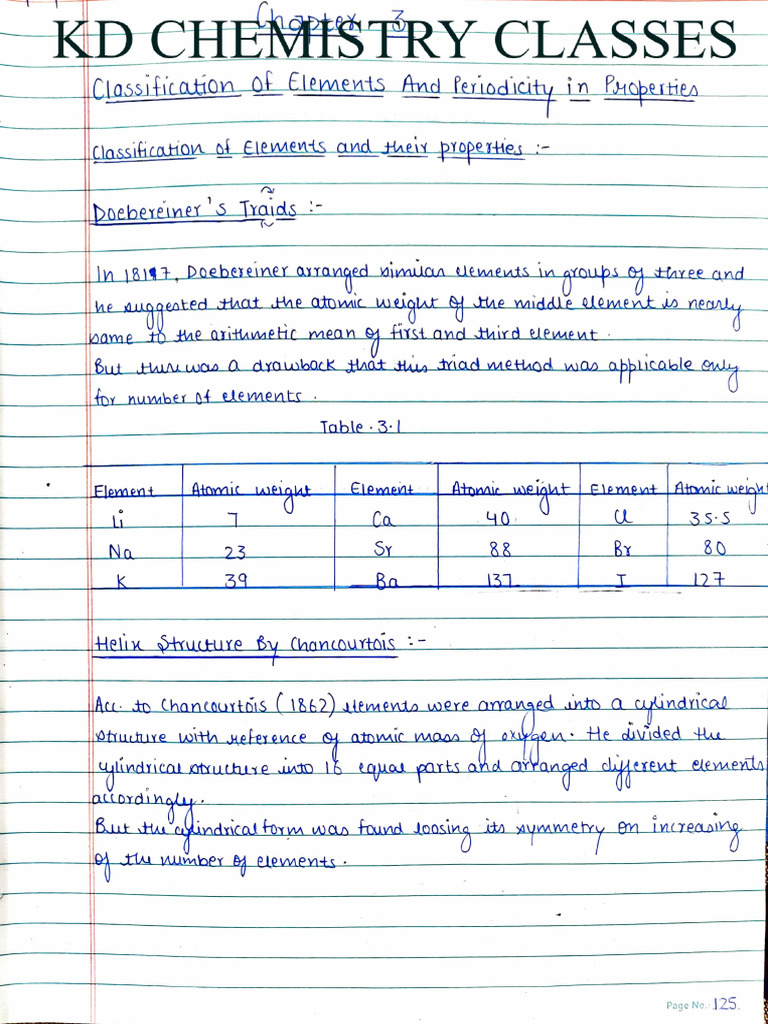 Chapter 3
KD CHEMISTRY CLASSES
Classification Of Elements And Periodicity in Properties
Classification of Elements and their properties :-
Doebereiner's Traids :-
In 1817, Doebereiner arranged similar elements in groups of three and
he suggested that the atomic weight of the middle element is nearly
same to the arithmetic mean of first and third element.
But there was a drawback that this triad method was applicable only
for number of elements.
Table.3.1
Element Atomic weight Element Atomic weight Element Atomic weight
Li 7 Ca 40 Cl 35.5
Na 23 Sr 88 Br 80
K 39 Ba 137 I 127
Helix Structure By Chancourtois :-
Acc. to Chancourtois (1862) elements were arranged into a cylindrical
structure with reference of atomic mass of oxygen. He divided the
cylindrical structure into 16 equal parts and arranged different elements
accordingly.
But the cylindrical form was found loosing its symmetry on increasing
of the number of elements.
Page No.: 125